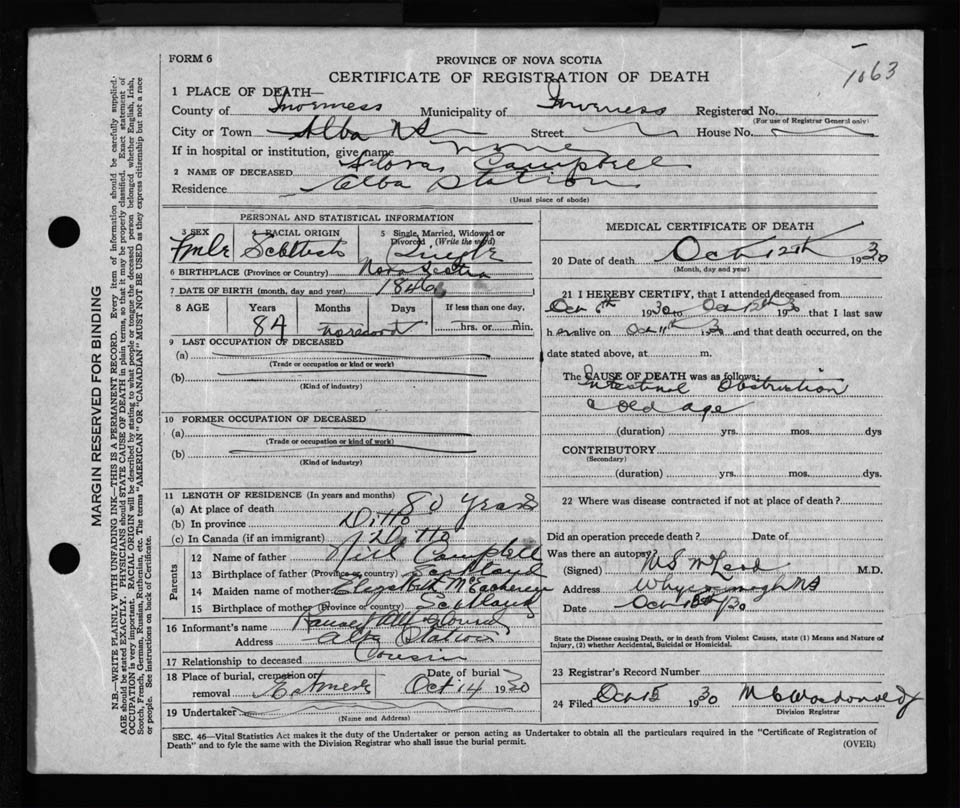 1063
FORM 6
PROVINCE OF NOVA SCOTIA
CERTIFICATE OF REGISTRATION OF DEATH
1 PLACE OF DEATH—
County of Inverness Municipality of Inverness Registered No.
(For use of Registrar General only)
City or Town Alba NS Street House No.
If in hospital or institution, give name none
2 NAME OF DECEASED Flora Campbell
Residence Alba Station
(Usual place of abode)
PERSONAL AND STATISTICAL INFORMATION
3 SEX 4 RACIAL ORIGIN 5 Single, Married, Widowed or Divorced (Write the word)
Fmle Scottish Single
6 BIRTHPLACE (Province or Country) Nova Scotia
7 DATE OF BIRTH (month, day and year) 1846
8 AGE Years Months Days If less than one day,
84 no record hrs. or min.
9 LAST OCCUPATION OF DECEASED
(a)
(Trade or occupation or kind or work)
(b)
(Kind of industry)
10 FORMER OCCUPATION OF DECEASED
(a)
(Trade or occupation or kind of work)
(b)
(Kind of industry)
11 LENGTH OF RESIDENCE (In years and months)
(a) At place of death 80 years
(b) In province Ditto
(c) In Canada (if an immigrant) Ditto
Parents
12 Name of father Neil Campbell
13 Birthplace of father (Province or country) Scotland
14 Maiden name of mother Elizabeth McEachern
15 Birthplace of mother (Province or country) Scotland
16 Informant's name
Address Alba Station
17 Relationship to deceased Cousin
18 Place of burial, cremation or removal Date of burial Oct 14 1930
19 Undertaker
(Name and Address)
MEDICAL CERTIFICATE OF DEATH
20 Date of death Oct 12th 1930
(Month, day and year)
21 I HEREBY CERTIFY, that I attended deceased from
Oct 6th 1930 to Oct 12th 1930 that I last saw
h er alive on Oct 11th 1930 and that death occurred, on the
date stated above, at m.
The CAUSE OF DEATH was as follows:
Intestinal Obstruction
old age
(duration) yrs. mos. dys
CONTRIBUTORY
(Secondary)
(duration) yrs. mos. dys.
22 Where was disease contracted if not at place of death?
Did an operation precede death? Date of
Was there an autopsy?
(Signed) MS McLeod M.D.
Address Whycocomagh NS
Date Oct /30
State the Disease causing Death, or in death from Violent Causes, state (1) Means and Nature of
Injury, (2) whether Accidental, Suicidal or Homicidal.
23 Registrar's Record Number
24 Filed Oct 15 1930
Division Registrar
SEC. 46—Vital Statistics Act makes it the duty of the Undertaker or person acting as Undertaker to obtain all the particulars required in the "Certificate of Registration of
Death" and to fyle the same with the Division Registrar who shall issue the burial permit. (OVER)
MARGIN RESERVED FOR BINDING
N.B.—WRITE PLAINLY WITH UNFADING INK—THIS IS A PERMANENT RECORD. Every item of information should be carefully supplied.
AGE should be stated EXACTLY. PHYSICIANS should STATE CAUSE OF DEATH in plain terms, so that it may be properly classified. Exact statement of
OCCUPATION is very important. RACIAL ORIGIN will be described by stating to what people or tongue the deceased person belonged whether English, Irish,
Scotch, French, German, Russian, Ruthenian, etc. The terms "AMERICAN" OR "CANADIAN" MUST NOT BE USED as they express citizenship but not a race
or people. See instructions on back of Certificate.